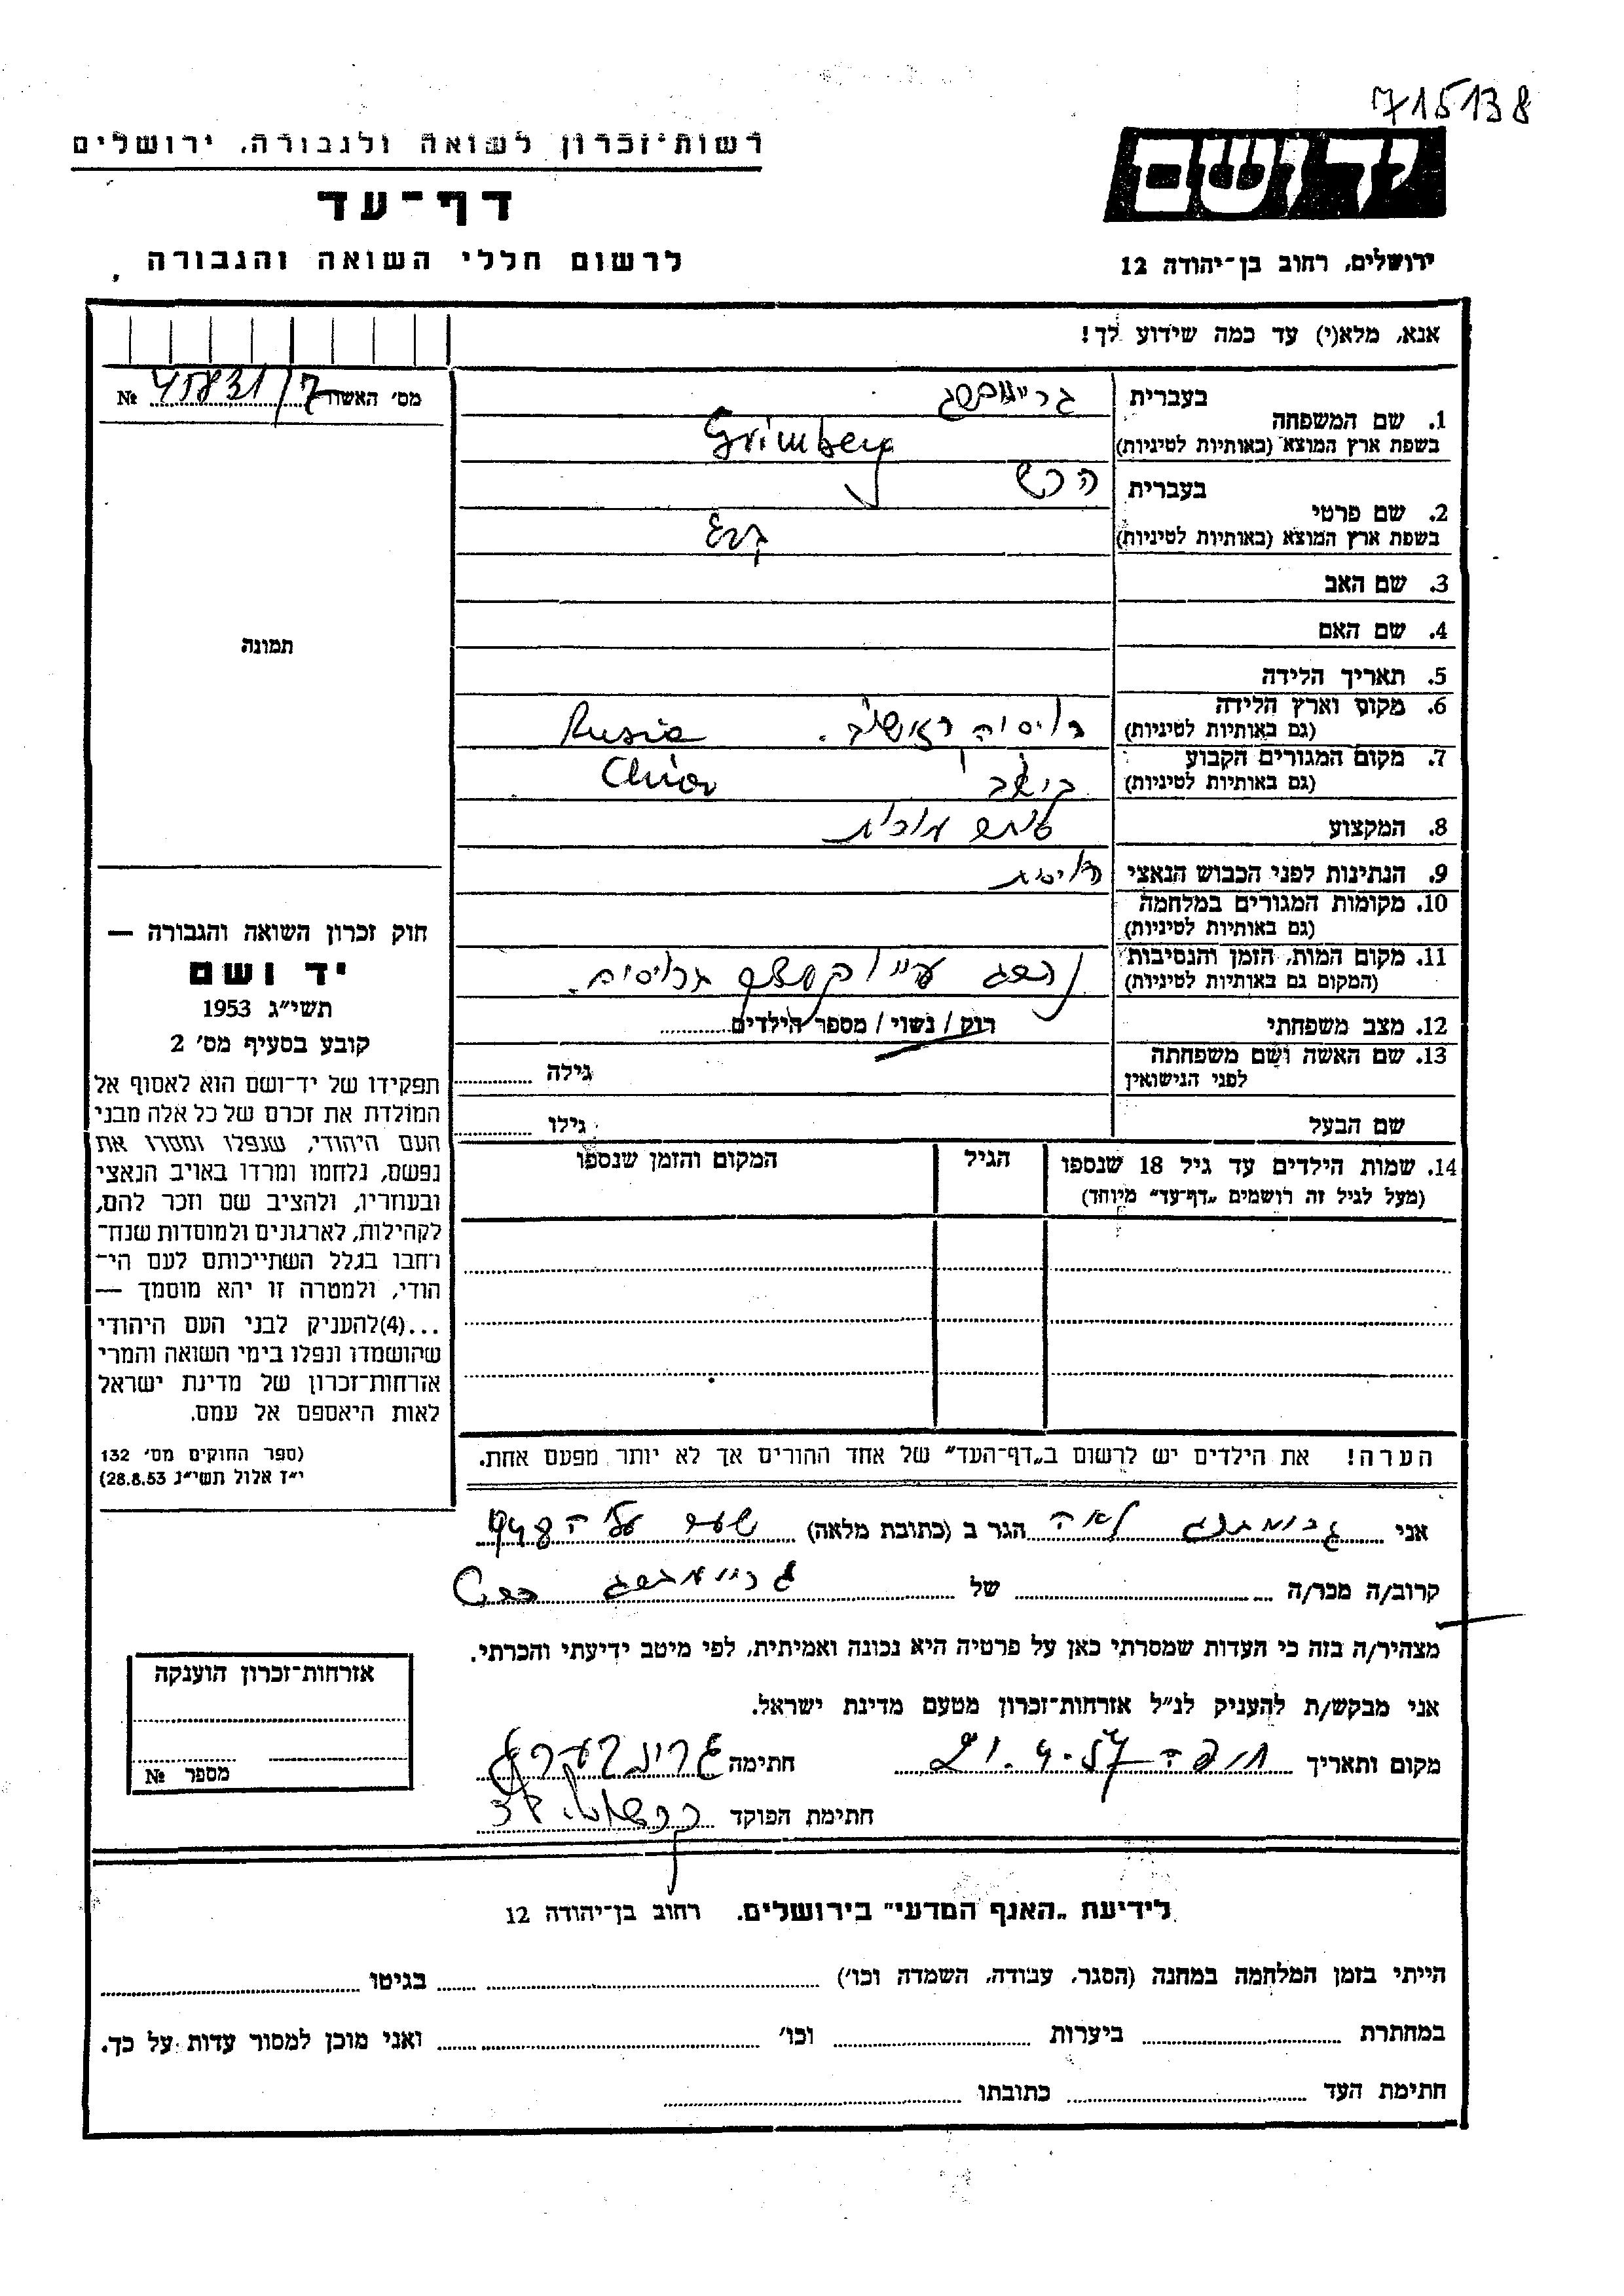 715138
יד ושם
ירושלים, רחוב בן־יהודה 12
רשות־זכרון לשואה ולגבורה, ירושלים
דף־עד
לרשום חללי השואה והגבורה
אנא, מלא(י) עד כמה שידוע לך!
1. שם המשפחה
בעברית
בשפת ארץ המוצא (באותיות לטיניות) Grimberg
2. שם פרטי
בעברית הרש
בשפת ארץ המוצא (באותיות לטיניות)
3. שם האב
4. שם האם
5. תאריך הלידה
6. מקום וארץ הלידה
(גם באותיות לטיניות) רוסיה Rusia
7. מקום המגורים הקבוע
(גם באותיות לטיניות)
8. המקצוע
9. הנתינות לפני הכבוש הנאצי רוסית
10. מקומות המגורים במלחמה
(גם באותיות לטיניות)
11. מקום המות, הזמן והנסיבות
(המקום גם באותיות לטיניות) נהרג ברוסיה.
12. מצב משפחתי רוק / נשוי / מספר הילדים
13. שם האשה ושם משפחתה
לפני הנישואין גילה
שם הבעל גילו
14. שמות הילדים עד גיל 18 שנספו הגיל המקום והזמן שנספו
(מעל לגיל זה רושמים „דף־עד" מיוחד)
הערה! את הילדים יש לרשום ב„דף־העד" של אחד ההורים אך לא יותר מפעם אחת.
מס' האשור № 45831/7
תמונה
חוק זכרון השואה והגבורה —
יד ושם
תשי"ג 1953
קובע בסעיף מס' 2
תפקידו של יד־ושם הוא לאסוף אל
המולדת את זכרם של כל אלה מבני
העם היהודי, שנפלו ומסרו את
נפשם, נלחמו ומרדו באויב הנאצי
ובעוזריו, ולהציב שם וזכר להם,
לקהילות, לארגונים ולמוסדות שנח־
רבו בגלל השתייכותם לעם הי־
הודי, ולמטרה זו יהא מוסמך —
...(4)להעניק לבני העם היהודי
שהושמדו ונפלו בימי השואה והמרי
אזרחות־זכרון של מדינת ישראל
לאות היאספם אל עמם.
(ספר החוקים מס' 132
י"ז אלול תשי"ג 28.8.53)
אני לאה הגר ב (כתובת מלאה) שער עליה 948
קרוב/ה מכר/ה של
מצהיר/ה בזה כי העדות שמסרתי כאן על פרטיה היא נכונה ואמיתית, לפי מיטב ידיעתי והכרתי.
אני מבקש/ת להעניק לנ"ל אזרחות־זכרון מטעם מדינת ישראל.
מקום ותאריך חיפה 21.4.57 חתימה
חתימת הפוקד
אזרחות־זכרון הוענקה
מספר №
לידיעת „האגף המדעי" בירושלים. רחוב בן־יהודה 12
הייתי בזמן המלחמה במחנה (הסגר, עבודה, השמדה וכו') בגיטו
במחתרת ביערות וכו' ואני מוכן למסור עדות על כך.
חתימת העד כתובתו